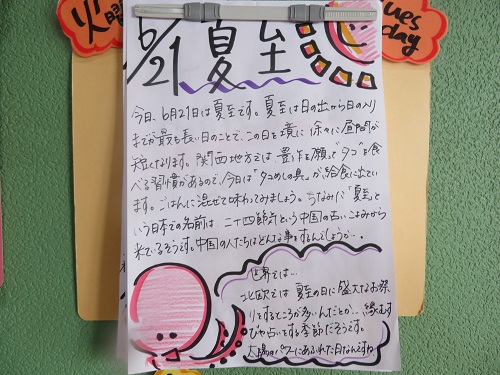 火曜
Tuesday
6/21 夏至
今日、6月21日は夏至です。夏至は日の出から日の入り
までが最も長い日のことで、この日を境に徐々に昼間が
短くなります。関西地方では豊作を願って"タコ"を食
べる習慣があるので、今日は"タコめしの具"が給食に出てい
ます。ごはんに混ぜて味わってみましょう。ちなみに「夏至」と
いう日本での名前は、二十四節気という中国の古いこよみから
来ているそうです。中国の人たちはどんな事をするんでしょうか…。
世界では…
北欧では夏至の日に盛大なお祭
りをするところが多いんだとか…。縁むす
びや占いをする季節だそうです。
太陽のパワーにあふれた日なんですね